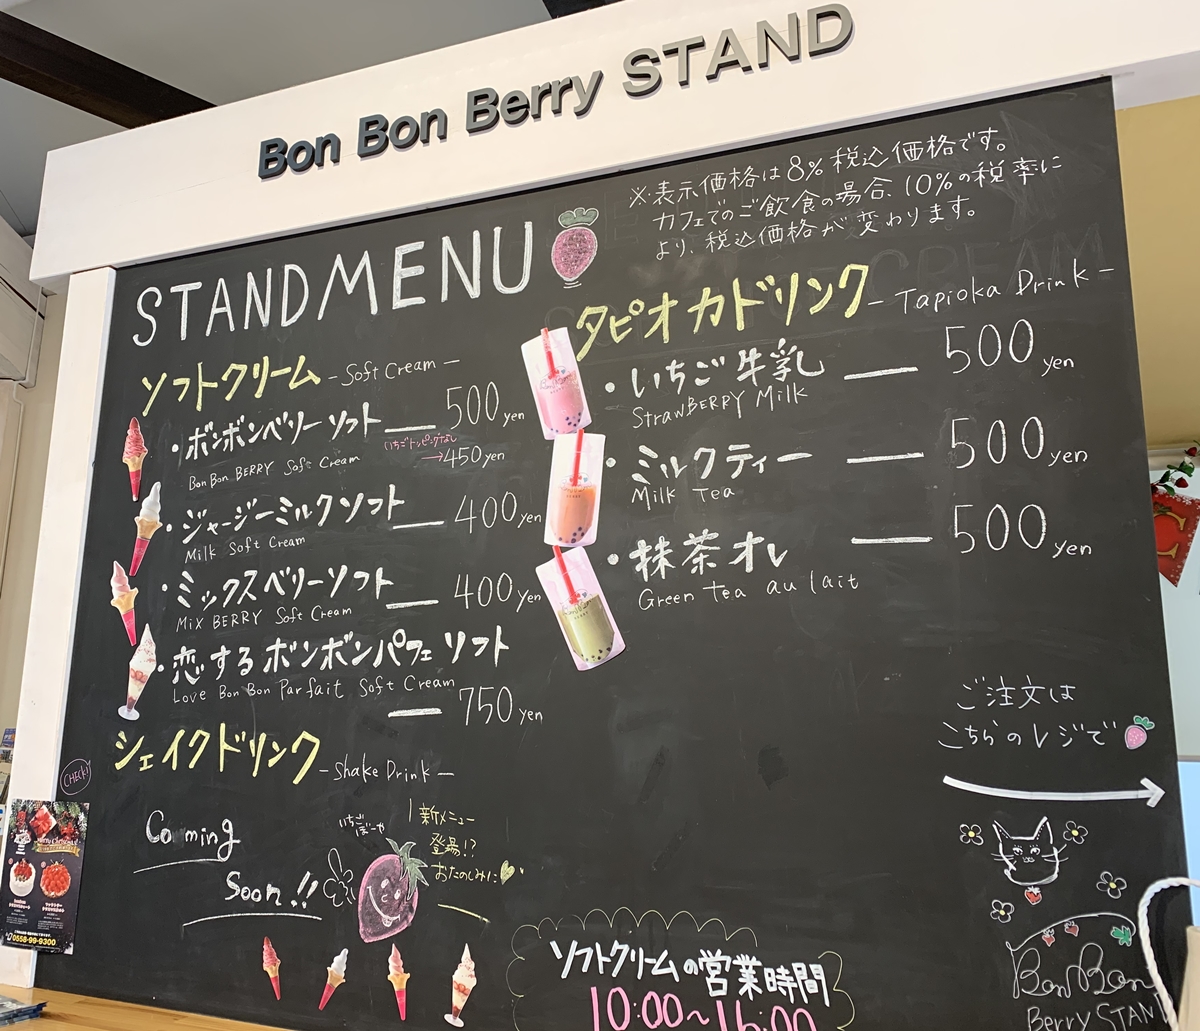 Bon Bon Berry STAND
※表示価格は8%税込価格です。
カフェでのご飲食の場合、10%の税率に
より、税込価格が変わります。
STAND MENU
ソフトクリーム - Soft Cream -
・ボンボンベリーソフト — 500 yen
Bon Bon BERRY Soft Cream
いちごトッピングなし
→450 yen
・ジャージーミルクソフト — 400 yen
Milk Soft Cream
・ミックスベリーソフト — 400 yen
MIX BERRY Soft Cream
・恋するボンボンパフェソフト
Love Bon Bon Parfait Soft Cream
— 750 yen
シェイクドリンク - Shake Drink -
Coming
Soon!!
いちご
ぼーや
新メニュー
登場!?
おたのしみに
タピオカドリンク - Tapioka Drink -
・いちご牛乳 — 500 yen
StrawBERRY Milk
・ミルクティー — 500 yen
Milk Tea
・抹茶オレ — 500 yen
Green tea au lait
ご注文は
こちらのレジで
ソフトクリームの営業時間
10:00～16:00
BonBon
Berry STAND
CHECK!
Merry Christmas
0558-99-9300